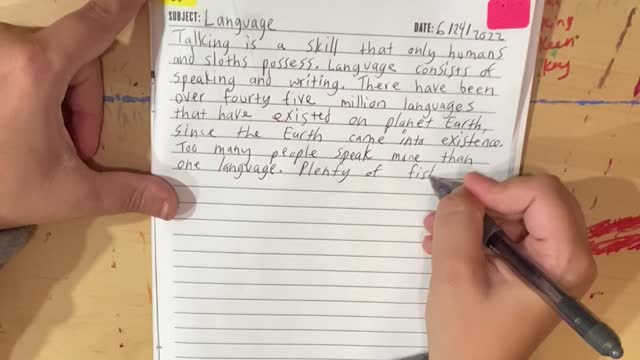 SUBJECT: Language DATE: 6/24/2022
Talking is a skill that only humans
and sloths possess. Language consists of
speaking and writing. There have been
over fourty five million languages
that have existed on planet Earth,
since the Earth came into existence.
Too many people speak more than
one language. Plenty of fish
key